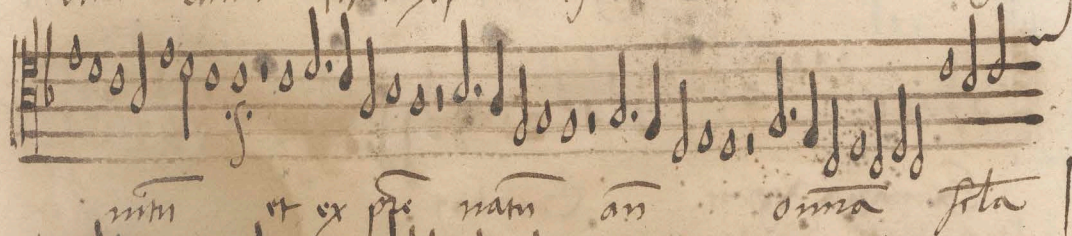 nitu et ex pre natu an omnia scla